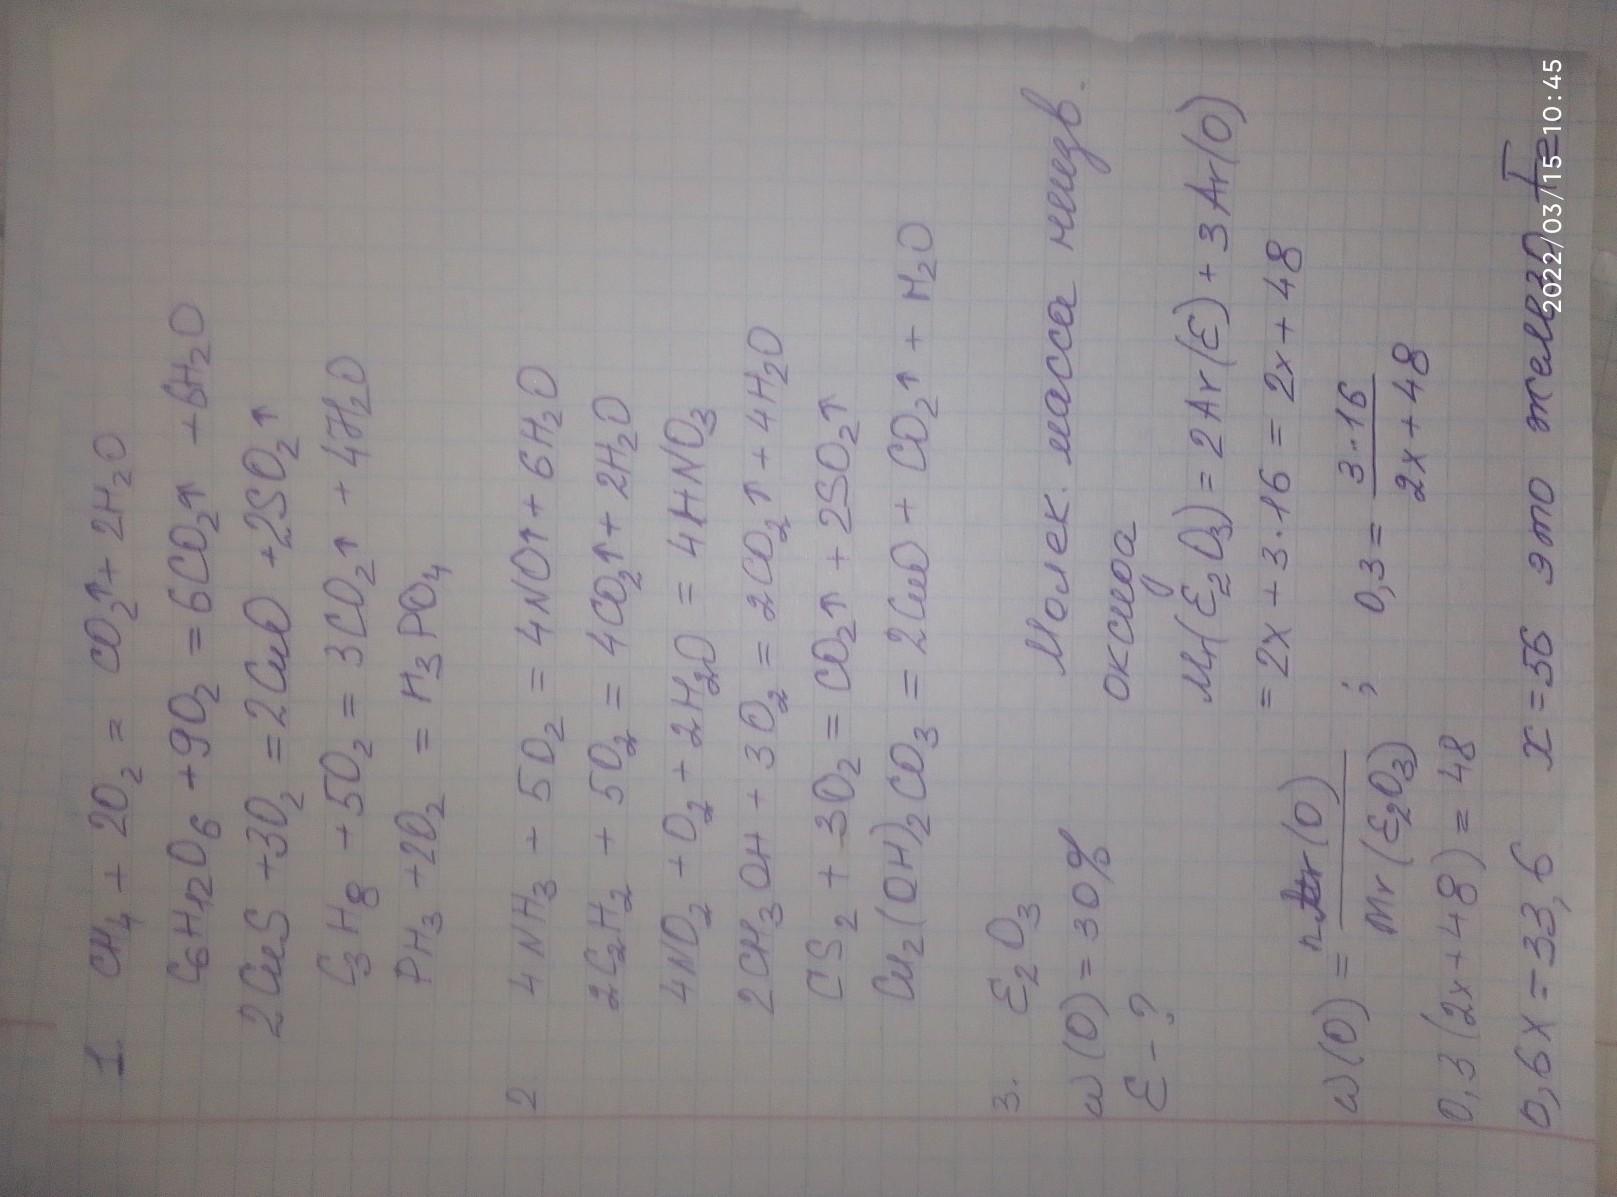 1. CH₄ + 2O₂ = CO₂↑ + 2H₂O
C₆H₁₂O₆ + 9O₂ = 6CO₂↑ + 6H₂O
2CuS + 3O₂ = 2CuO + 2SO₂↑
C₃H₈ + 5O₂ = 3CO₂↑ + 4H₂O
PH₃ + 2O₂ = H₃PO₄
2 4NH₃ + 5O₂ = 4NO↑ + 6H₂O
2C₂H₂ + 5O₂ = 4CO₂↑ + 2H₂O
4NO₂ + O₂ + 2H₂O = 4HNO₃
2CH₃OH + 3O₂ = 2CO₂↑ + 4H₂O
CS₂ + 3O₂ = CO₂↑ + 2SO₂↑
Cu₂(OH)₂CO₃ = 2CuO + CO₂↑ + H₂O
3. Ɛ₂O₃
w(O) = 30%
Ɛ - ?
Молек. масса неизв.
оксида
Mr(Ɛ₂O₃) = 2Ar(Ɛ) + 3Ar(O)
= 2x + 3·16 = 2x + 48
w(O) = nAr(O) / Mr(Ɛ₂O₃) ; 0,3 = 3·16 / 2x + 48
0,3(2x + 48) = 48
0,6x = 33,6 x = 56 это железо Fe
2022/03/15 10:45